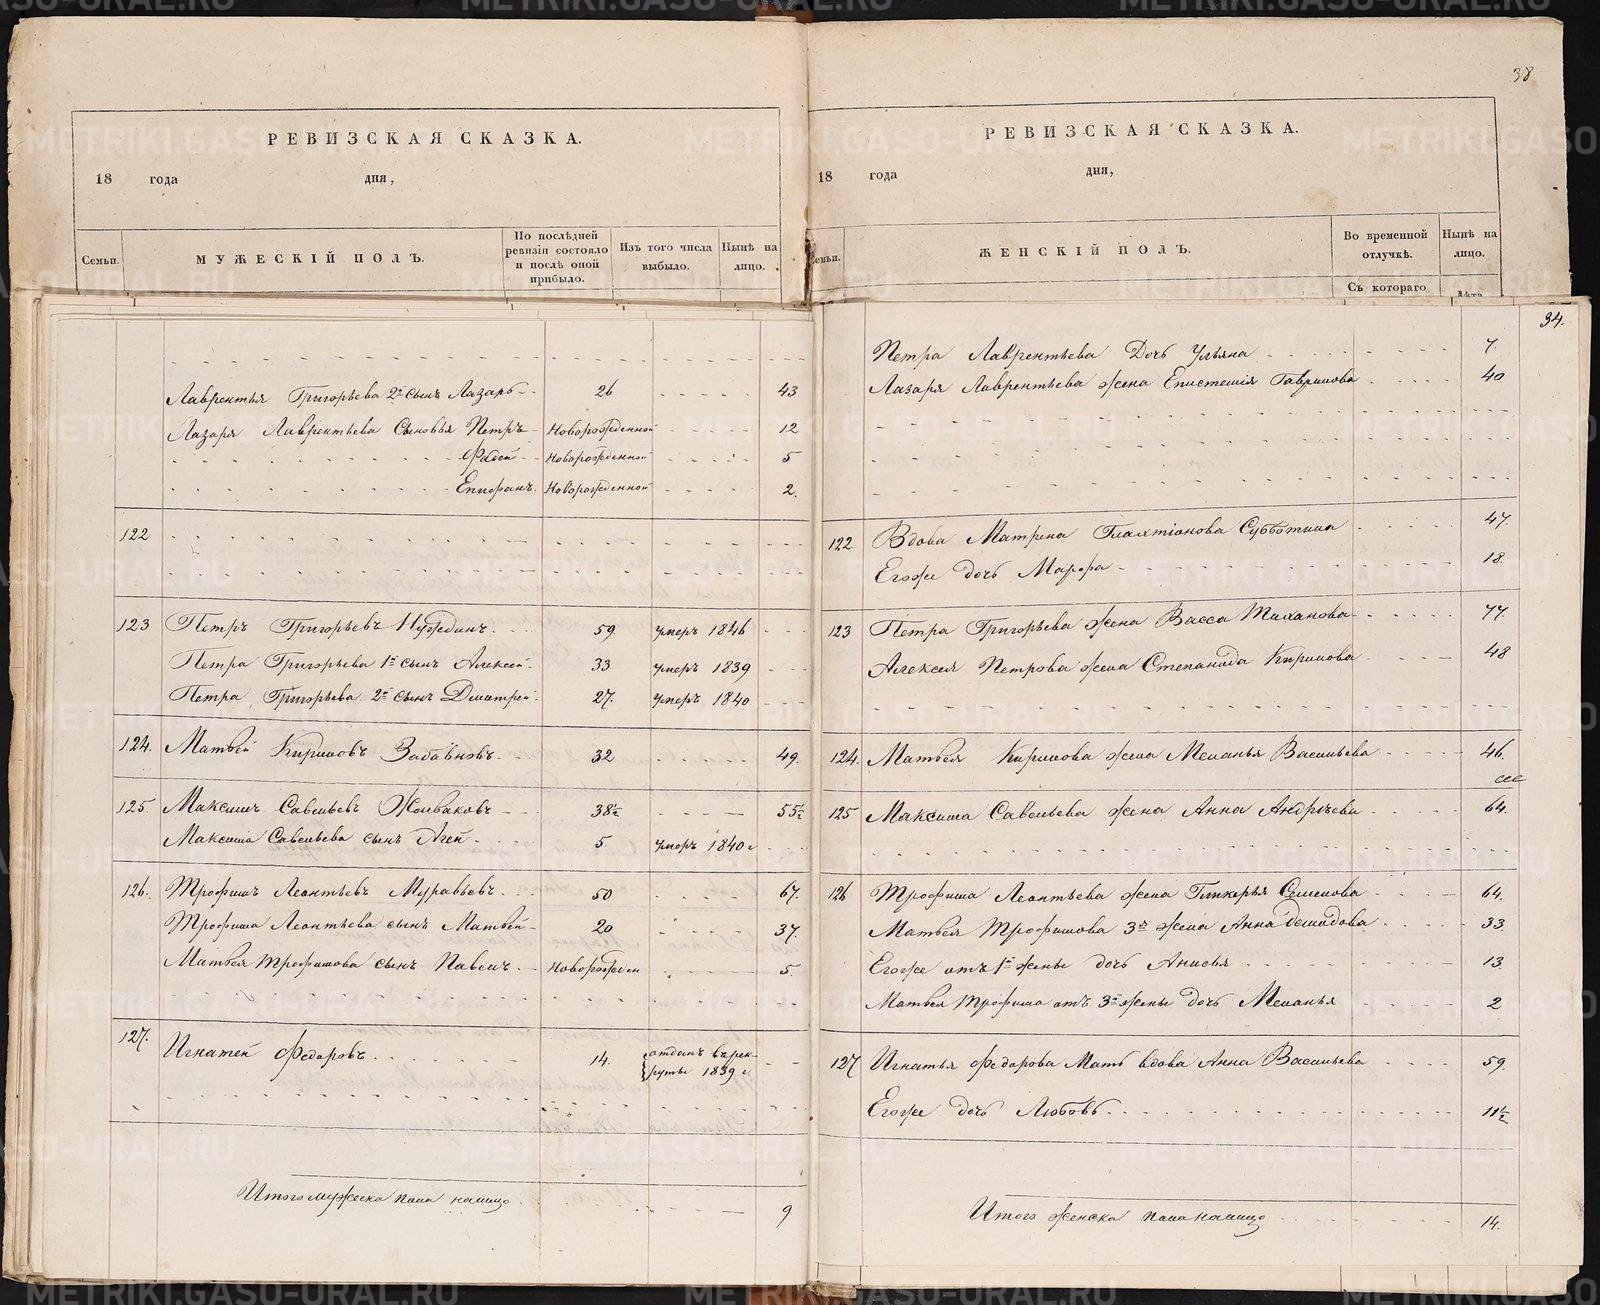 38
РЕВИЗСКАЯ СКАЗКА.
18 года дня,
Семьи.
МУЖЕСКІЙ ПОЛЪ.
По послѣдней ревизіи состояло и послѣ оной прибыло.
Изъ того числа выбыло.
Нынѣ на лицо.
Лаврентья Григорьева 2й сынъ Лазарь 26 43
Лазаря Лаврентьева Сыновья Петръ Новорожденной 12
Фадей Новорожденной 5
Епифанъ Новорожденной 2.
122
123 Петръ Григорьевъ Нужеинъ 59 умеръ 1846
Петра Григорьева 1й сынъ Алексей 33 умеръ 1839
Петра Григорьева 2й сынъ Дмитрей 27. умеръ 1840
124. Матвей Кириловъ Забавновъ 32 49.
125 Максимъ Савельевъ Жолваковъ 38½ 55½
Максима Савельева сынъ Агей 5 умеръ 1840 г
126. Трофимъ Леонтьевъ Муравьевъ 50 67.
Трофима Леонтьева сынъ Матвей 20 37.
Матвея Трофимова сынъ Павелъ Новорожден 5.
127. Игнатей Федоровъ 14. отданъ въ рек-
руты 1839 г.
Итого мужеска пола налицо 9
РЕВИЗСКАЯ СКАЗКА.
18 года дня,
Семьи.
ЖЕНСКІЙ ПОЛЪ.
Во временной отлучкѣ.
Нынѣ на лицо.
Съ котораго
Лѣта
34.
Петра Лаврентьева Дочь Ульяна 7
Лазаря Лаврентьева жена Епистемия Гаврилова 40
122 Вдова Матрена Галахтіонова Субботина 47.
Егоже дочь Марфа 18
123 Петра Григорьева жена Васса Тиханова 77.
Алексея Петрова жена Степанида Кирилова 48
124. Матвея Кирилова жена Меланья Васильева 46.
125 Максима Савельева жена Анна Андрѣева 64.
126 Трофима Леонтьева жена Гликерья Семенова 64.
Матвея Трофимова 3я жена Анна Демидова 33
Егоже отъ 1й жены дочь Анисья 13
Матвея Трофима отъ 3й жены дочь Меланья 2
127 Игнатья Федорова Мать вдова Анна Васильева 59.
Егоже дочь Любовь 11½
Итого женска пола налицо 14.
METRIKI.GASO-URAL.RU